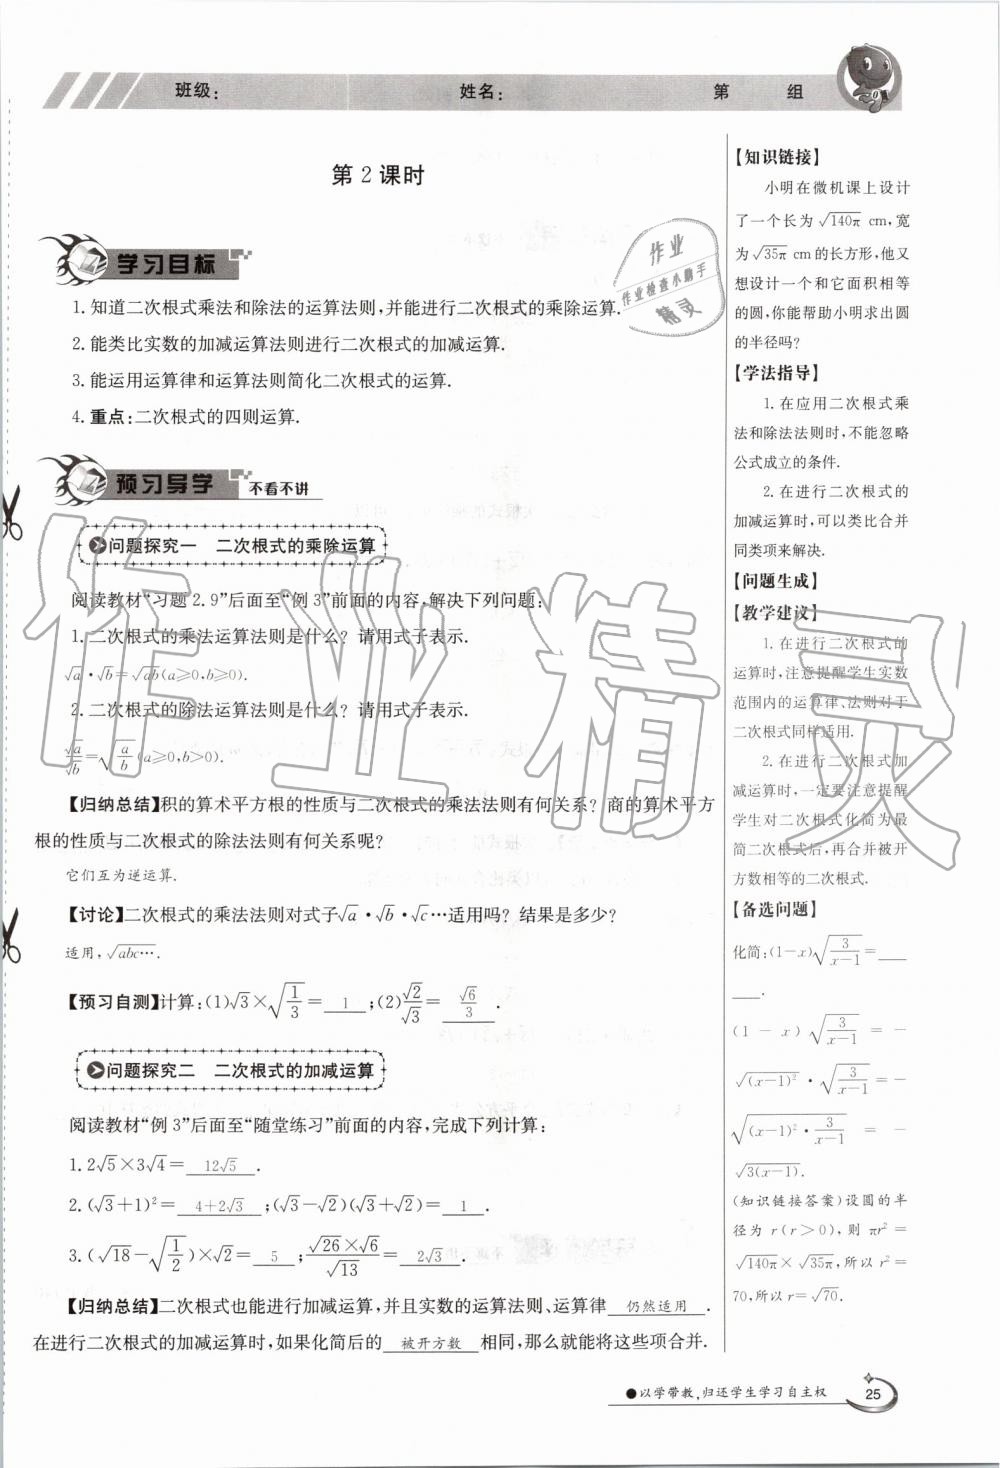 班级： 姓名： 第 组
第2课时
学习目标
1. 知道二次根式乘法和除法的运算法则,并能进行二次根式的乘除运算.
2. 能类比实数的加减运算法则进行二次根式的加减运算.
3. 能运用运算律和运算法则简化二次根式的运算.
4. 重点:二次根式的四则运算.
预习导学 不看不讲
问题探究一 二次根式的乘除运算
阅读教材“习题2.9”后面至“例3”前面的内容,解决下列问题:
1. 二次根式的乘法运算法则是什么？请用式子表示.
√a·√b=√ab(a≥0,b≥0).
2. 二次根式的除法运算法则是什么？请用式子表示.
√a/√b=√(a/b)(a≥0,b>0).
【归纳总结】积的算术平方根的性质与二次根式的乘法法则有何关系？商的算术平方
根的性质与二次根式的除法法则有何关系呢?
它们互为逆运算.
【讨论】二次根式的乘法法则对式子√a·√b·√c…适用吗？结果是多少?
适用,√abc….
【预习自测】计算:(1)√3×√(1/3)= 1 ;(2)√2/√3= √6/3 .
问题探究二 二次根式的加减运算
阅读教材“例3”后面至“随堂练习”前面的内容,完成下列计算:
1. 2√5×3√4= 12√5 .
2. (√3+1)²= 4+2√3 ;(√3-√2)(√3+√2)= 1 .
3. (√18-√(1/2))×√2= 5 ;(√26×√6)/√13= 2√3 .
【归纳总结】二次根式也能进行加减运算,并且实数的运算法则、运算律 仍然适用 .
在进行二次根式的加减运算时,如果化简后的 被开方数 相同,那么就能将这些项合并.
【知识链接】
小明在微机课上设计
了一个长为√140π cm,宽
为√35π cm的长方形,他又
想设计一个和它面积相等
的圆,你能帮助小明求出圆
的半径吗?
【学法指导】
1. 在应用二次根式乘
法和除法法则时,不能忽略
公式成立的条件.
2. 在进行二次根式的
加减运算时,可以类比合并
同类项来解决.
【问题生成】
【教学建议】
1. 在进行二次根式的
运算时,注意提醒学生实数
范围内的运算律、法则对于
二次根式同样适用.
2. 在进行二次根式加
减运算时,一定要注意提醒
学生对二次根式化简为最
简二次根式后,再合并被开
方数相等的二次根式.
【备选问题】
化简:(1-x)√(3/(x-1))=____
____.
(1-x)√(3/(x-1))=-
√(x-1)²·√(3/(x-1))=-
√((x-1)²·3/(x-1))=-
√3(x-1).
(知识链接答案)设圆的半
径为r(r>0),则πr²=
√140π×√35π,所以r²=
70,所以r=√70.
以学带教,归还学生学习自主权 25
作业
作业检查小助手
精灵
作业精灵